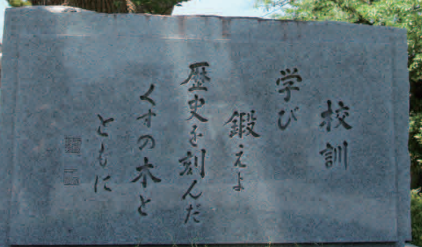 校訓
学び
鍛えよ
歴史を刻んだ
くすの木と
ともに